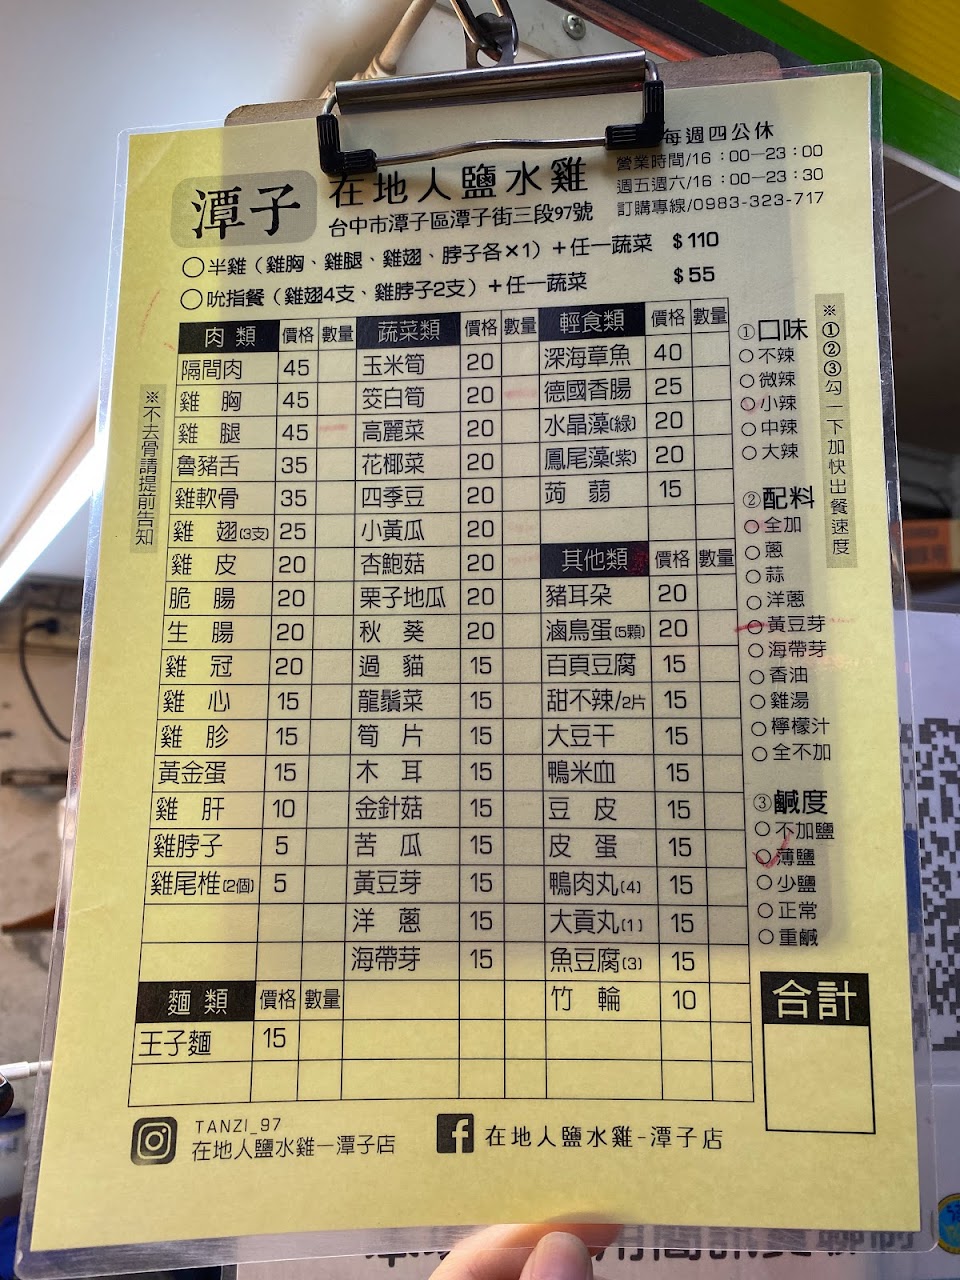 每週四公休
營業時間/16：00—23：00
週五週六/16：00—23：30
訂購專線/0983-323-717
潭子 在地人鹽水雞
台中市潭子區潭子街三段97號
○半雞（雞胸、雞腿、雞翅、脖子各×1）＋任一蔬菜 $110
○吮指餐（雞翅4支、雞脖子2支）＋任一蔬菜 $55
※不去骨請提前告知
肉類 價格 數量
隔間肉 45
雞胸 45
雞腿 45
魯豬舌 35
雞軟骨 35
雞翅(3支) 25
雞皮 20
脆腸 20
生腸 20
雞冠 20
雞心 15
雞胗 15
黃金蛋 15
雞肝 10
雞脖子 5
雞尾椎(2個) 5
麵類 價格 數量
王子麵 15
蔬菜類 價格 數量
玉米筍 20
筊白筍 20
高麗菜 20
花椰菜 20
四季豆 20
小黃瓜 20
杏鮑菇 20
栗子地瓜 20
秋葵 20
過貓 15
龍鬚菜 15
筍片 15
木耳 15
金針菇 15
苦瓜 15
黃豆芽 15
洋蔥 15
海帶芽 15
輕食類 價格 數量
深海章魚 40
德國香腸 25
水晶藻(綠) 20
鳳尾藻(紫) 20
蒟蒻 15
其他類 價格 數量
豬耳朵 20
滷鳥蛋(5顆) 20
百頁豆腐 15
甜不辣/2片 15
大豆干 15
鴨米血 15
豆皮 15
皮蛋 15
鴨肉丸(4) 15
大貢丸(1) 15
魚豆腐(3) 15
竹輪 10
①口味
○不辣
○微辣
○小辣
○中辣
○大辣
②配料
○全加
○蔥
○蒜
○洋蔥
○黃豆芽
○海帶芽
○香油
○雞湯
○檸檬汁
○全不加
③鹹度
○不加鹽
○薄鹽
○少鹽
○正常
○重鹹
※①②③勾一下加快出餐速度
合計
TANZI_97
在地人鹽水雞—潭子店
在地人鹽水雞-潭子店